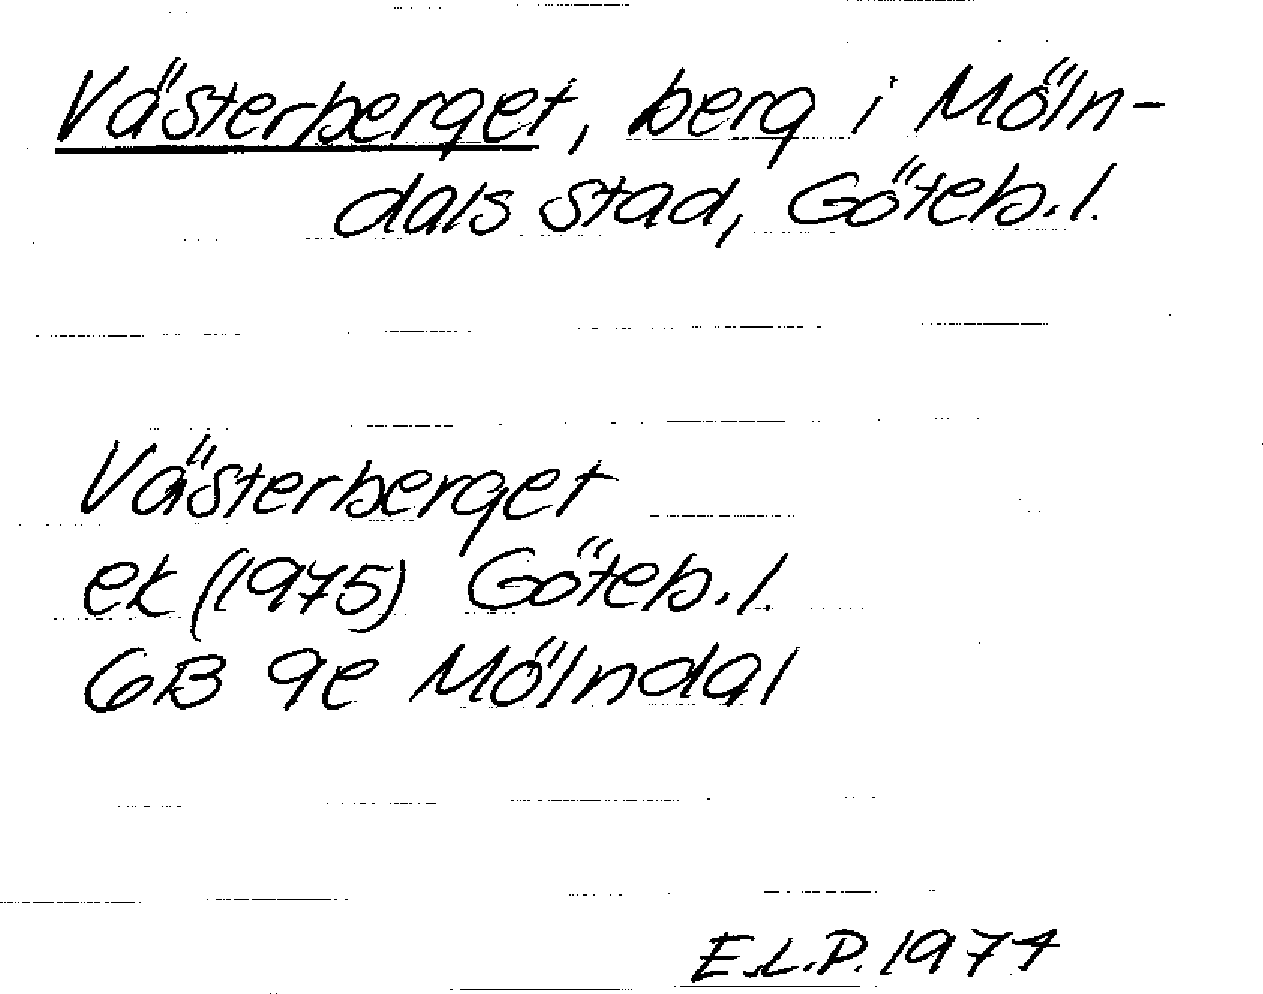 Västerberget, berg i Möln-
dals stad, Göteb.l.
Västerberget
ek (1975) Göteb.l.
6B 9e Mölndal
E.L.P. 1977